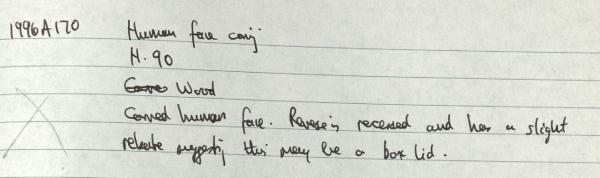 1996A170 Human face carving
H. 90
Wood
Carved human face. Reverse is recessed and has a slight
rebate suggesting this may be a box lid.